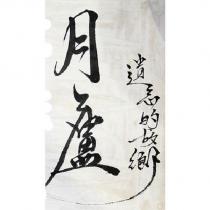 月廬
遺忘的故鄉